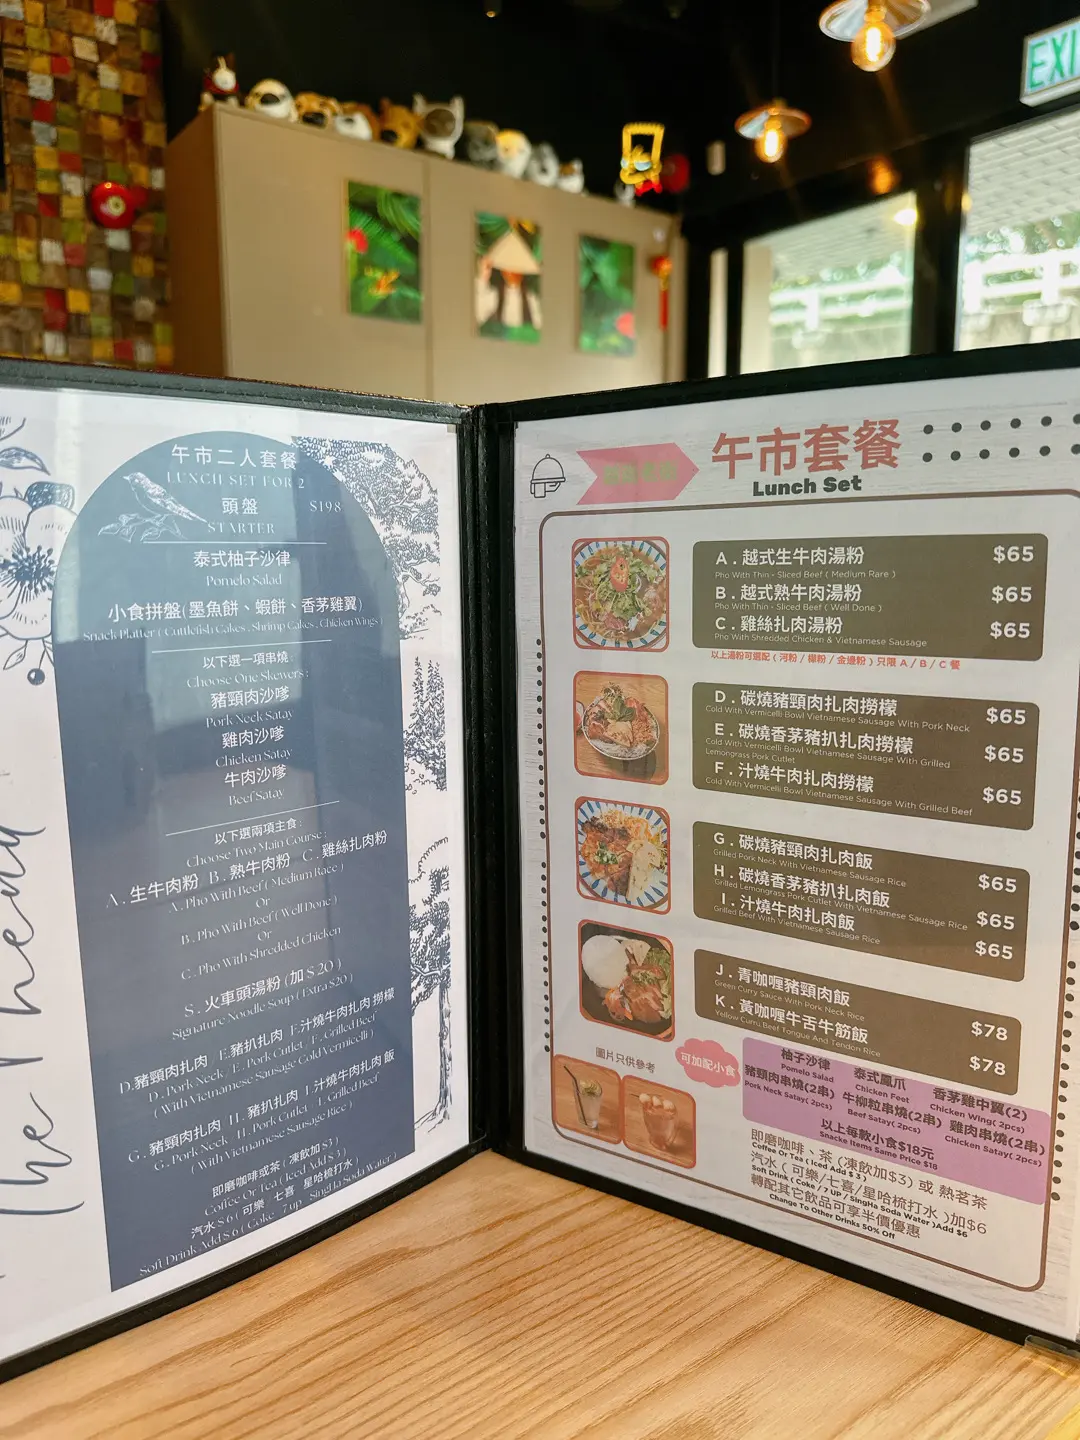 EXI
午市二人套餐
LUNCH SET FOR 2
頭盤 $198
STARTER
泰式柚子沙律
Pomelo Salad
小食拼盤(墨魚餅、蝦餅、香茅雞翼)
Snack Platter ( Cuttlefish Cakes , Shrimp Cakes , Chicken Wings )
以下選一項串燒:
Choose One Skewers :
豬頸肉沙嗲
Pork Neck Satay
雞肉沙嗲
Chicken Satay
牛肉沙嗲
Beef Satay
以下選兩項主食:
Choose Two Main Course :
A . 生牛肉粉 B . 熟牛肉粉 C . 雞絲扎肉粉
A . Pho With Beef ( Medium Race )
Or
B . Pho With Beef ( Well Done )
Or
C . Pho With Shredded Chicken
S . 火車頭湯粉 (加 $ 20 )
Signature Noodle Soup ( Extra $20 )
D.豬頸肉扎肉 E.豬扒扎肉 F.汁燒牛肉扎肉撈檬
D . Pork Neck / E . Pork Cutlet / F . Grilled Beef
( With Vietnamese Sausage Cold Vermicelli )
G . 豬頸肉扎肉 H . 豬扒扎肉 I . 汁燒牛肉扎肉飯
G . Pork Neck / H . Pork Cutlet / I . Grilled Beef
( With Vietnamese Sausage Rice )
即磨咖啡或茶 ( 凍飲加$3 )
Coffee Or Tea ( Iced Add $ 3 )
汽水 $ 6 ( 可樂 七喜 星哈梳打水 )
Soft Drink Add $ 6 ( Coke 7 up SingHa Soda Water )
午市套餐
Lunch Set
A . 越式生牛肉湯粉 $65
Pho With Thin - Sliced Beef ( Medium Rare )
B . 越式熟牛肉湯粉 $65
Pho With Thin - Sliced Beef ( Well Done )
C . 雞絲扎肉湯粉 $65
Pho With Shredded Chicken & Vietnamese Sausage
以上湯粉可選配 ( 河粉 / 檬粉 / 金邊粉 ) 只限 A / B / C 餐
D . 碳燒豬頸肉扎肉撈檬 $65
Cold With Vermicelli Bowl Vietnamese Sausage With Pork Neck
E . 碳燒香茅豬扒扎肉撈檬 $65
Cold With Vermicelli Bowl Vietnamese Sausage With Grilled
Lemongrass Pork Cutlet
F . 汁燒牛肉扎肉撈檬 $65
Cold With Vermicelli Bowl Vietnamese Sausage With Grilled Beef
G . 碳燒豬頸肉扎肉飯 $65
Grilled Pork Neck With Vietnamese Sausage Rice
H . 碳燒香茅豬扒扎肉飯 $65
Grilled Lemongrass Pork Cutlet With Vietnamese Sausage Rice
I . 汁燒牛肉扎肉飯 $65
Grilled Beef With Vietnamese Sausage Rice
J . 青咖喱豬頸肉飯 $78
Green Curry Sauce With Pork Neck Rice
K . 黃咖喱牛舌牛筋飯 $78
Yellow Curru Beef Tongue And Tendon Rice
圖片只供參考
可加配小食
柚子沙律 泰式鳳爪 香茅雞中翼(2)
Pomelo Salad Chicken Feet Chicken Wing( 2pcs)
豬頸肉串燒(2串) 牛柳粒串燒(2串) 雞肉串燒(2串)
Pork Neck Satay( 2pcs) Beef Satay( 2pcs) Chicken Satay( 2pcs)
以上每款小食$18元
Snacke Items Same Price $18
即磨咖啡、茶 (凍飲加$3) 或 熱茗茶
Coffee Or Tea ( Iced Add $ 3 )
汽水 ( 可樂/七喜/星哈梳打水 )加$6
Soft Drink ( Coke / 7 UP / SingHa Soda Water )Add $6
轉配其它飲品可享半價優惠
Change To Other Drinks 50% Off